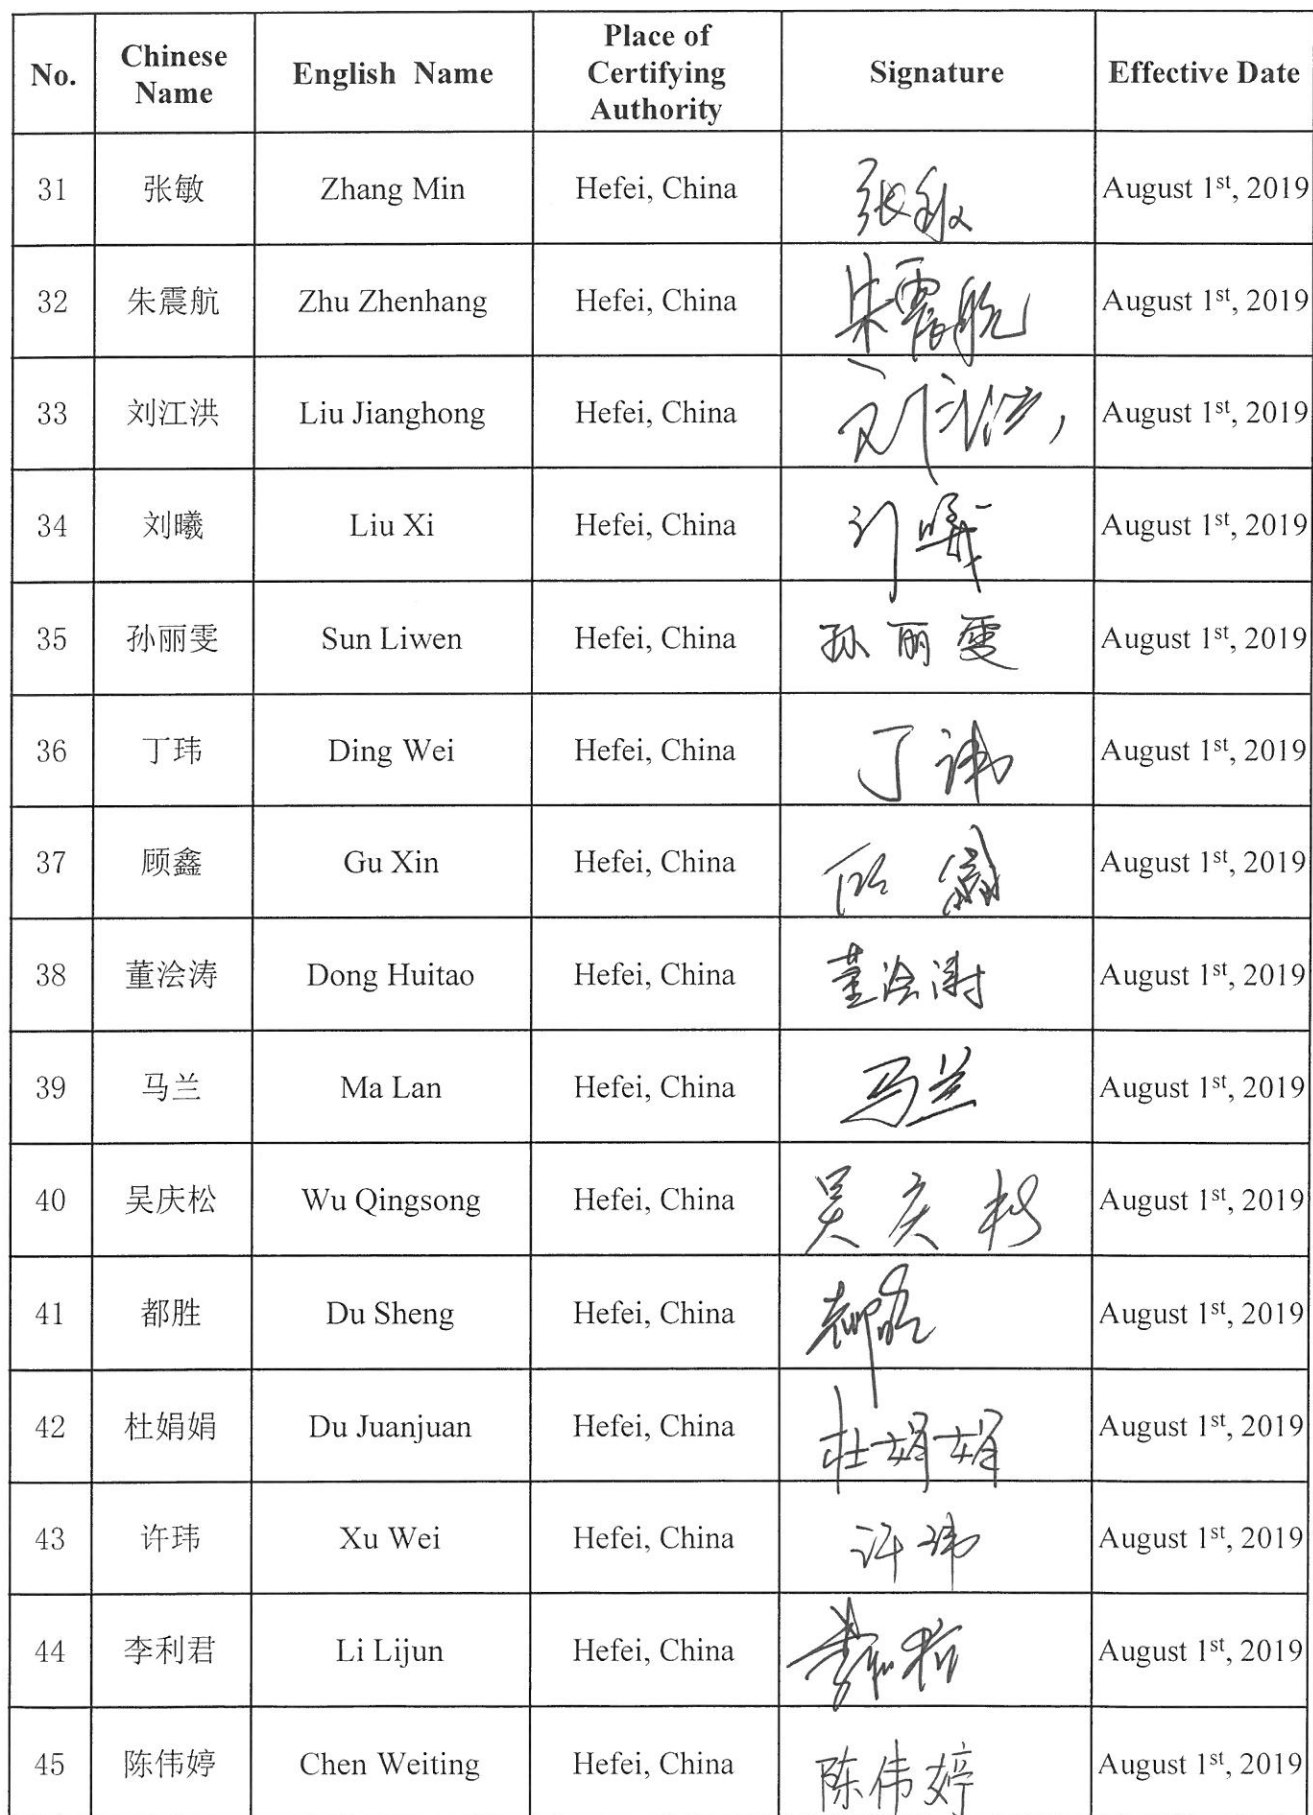 No. Chinese Name English Name Place of Certifying Authority Signature Effective Date
31 张敏 Zhang Min Hefei, China 张敏 August 1st, 2019
32 朱震航 Zhu Zhenhang Hefei, China 朱震航 August 1st, 2019
33 刘江洪 Liu Jianghong Hefei, China 刘江洪 August 1st, 2019
34 刘曦 Liu Xi Hefei, China 刘曦 August 1st, 2019
35 孙丽雯 Sun Liwen Hefei, China 孙丽雯 August 1st, 2019
36 丁玮 Ding Wei Hefei, China 丁玮 August 1st, 2019
37 顾鑫 Gu Xin Hefei, China 顾鑫 August 1st, 2019
38 董浍涛 Dong Huitao Hefei, China 董浍涛 August 1st, 2019
39 马兰 Ma Lan Hefei, China 马兰 August 1st, 2019
40 吴庆松 Wu Qingsong Hefei, China 吴庆松 August 1st, 2019
41 都胜 Du Sheng Hefei, China 都胜 August 1st, 2019
42 杜娟娟 Du Juanjuan Hefei, China 杜娟娟 August 1st, 2019
43 许玮 Xu Wei Hefei, China 许玮 August 1st, 2019
44 李利君 Li Lijun Hefei, China 李利君 August 1st, 2019
45 陈伟婷 Chen Weiting Hefei, China 陈伟婷 August 1st, 2019